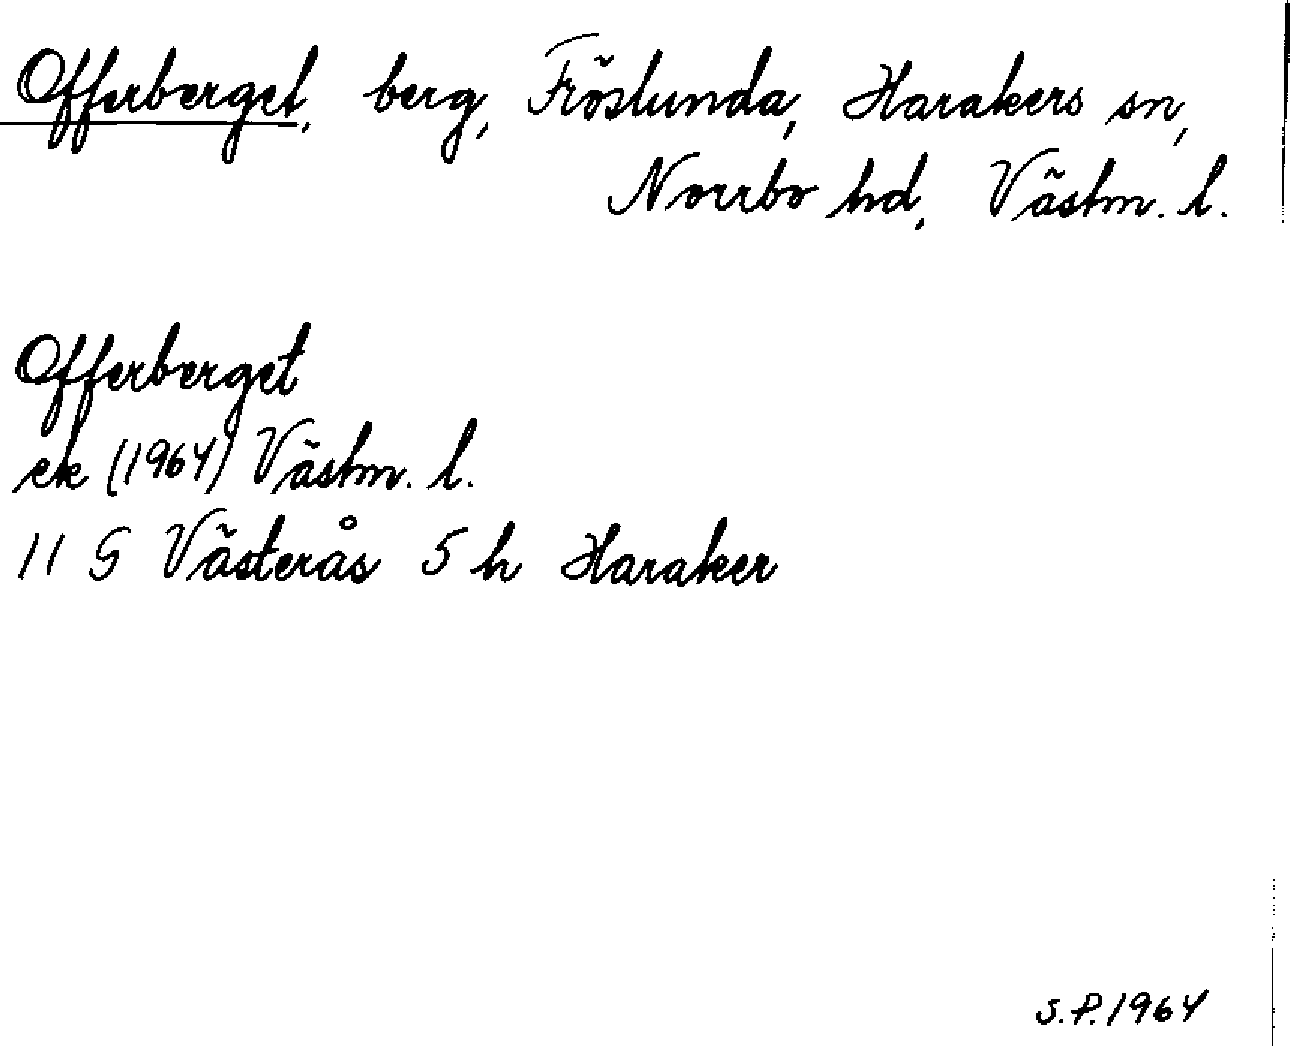 Offerberget, berg, Fröslunda, Harakers sn,
Norrbo hd, Västm. l.
Offerberget
ek (1964) Västm. l.
11 G Västerås 5 h Haraker
S.P. 1964